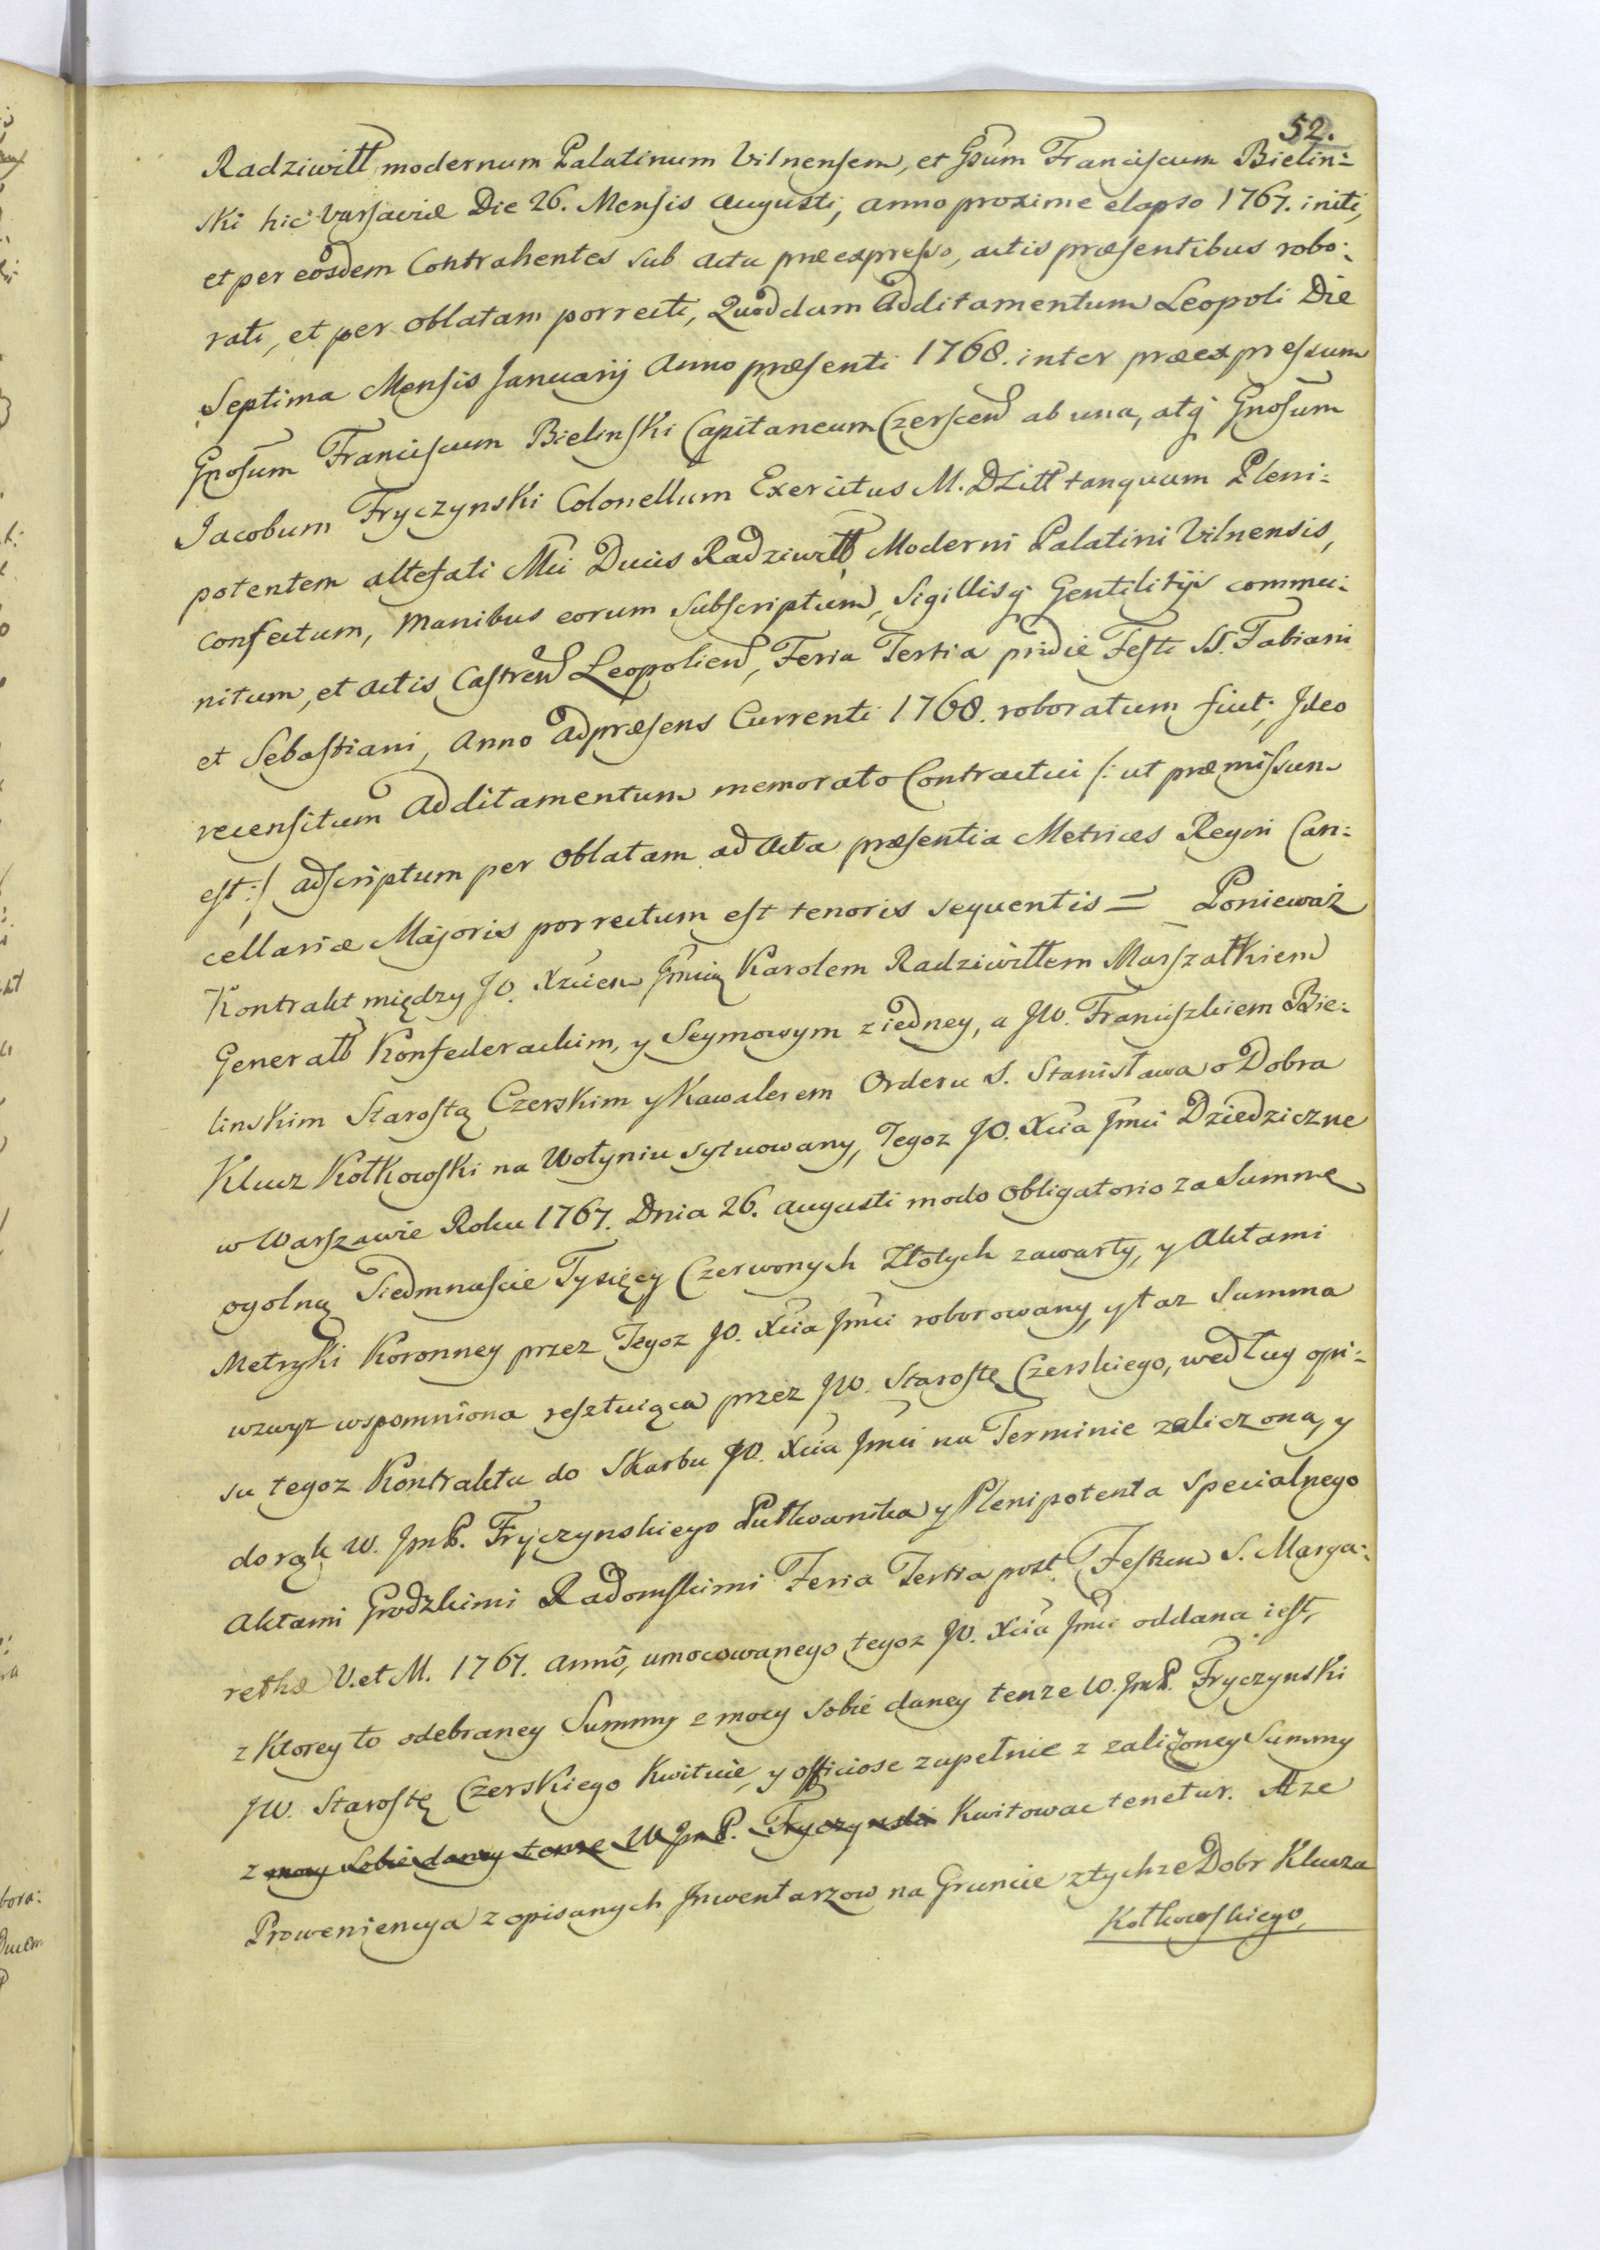 52.
Radziwiłł modernum Palatinum Vilnensem, et Gsum Franciscum Bielin:
ski hic Varsaviæ Die 26. Mensis Augusti, anno proxime elapso 1767. initi,
et per eosdem Contrahentes sub actu præexpresso, actis præsentibus robo:
rati, et per oblatam porrecti, Quoddam Additamentum Leopoli Die
Septima Mensis Januarij Anno præsenti 1768. inter præexpressum
Gnosum Franciscum Bielinski Capitaneum Czerscen ab una, atq Gnosum
Jacobum Fryczynski Colonellum Exercitus M. D Litt tanquam Pleni:
potentem altefati Mci Ducis Radziwiłł Moderni Palatini Vilnensis,
confectum, manibus eorum subscriptum, Sigillisq Gentilitijs commu:
nitum, et actis Castren Leopolien, Feria Tertia pridie Festi SS. Fabiani
et Sebastiani, Anno adpræsens Currenti 1768. roboratum fuit; Ideo
recensitum Additamentum memorato Contractui /: ut præmissum
est :/ adscriptum per Oblatam ad Acta præsentia Metrices Regni Can:
cellariæ Majoris porrectum est tenoris sequentis = Ponieważ
Kontrakt między JO. Xciem Jmcią Karolem Radziwiłłem Marszałkiem
Generałł Konfederackim, y Seymowym z iedney, a JW. Franciszkiem Bie:
linskim Starostą Czerskim y Kawalerem Orderu S. Stanisława o Dobra
Klucz Kołkowski na Wołyniu sytuowany, Tegoz JO. Xcia Jmci Dziedziczne
w Warszawie Roku 1767. Dnia 26. Augusti modo obligatorio za Summę
ogolną Siedmnaście Tysięcy Czerwonych Złotych zawarty, y Aktami
Metryki Koronney przez Tegoz JO. Xcia Jmci roborowany, y taz Summa
wzwyz wspomniona resztuiąca przez JW. Starostę Czerskiego, według opi:
su tegoz Kontraktu do Skarbu JO. Xcia Jmci na Terminie zaliczona, y
do rąk W. JmP. Fryczynskiego Pułkownika y Plenipotenta specialnego
Aktami Grodzkimi Radomskimi Feria Tertia post Festum S. Marga:
rethæ V. et M. 1767. anno, umocowanego tegoz JO. Xcia Jmci oddana iest,
z Ktorey to odebraney Summy z mocy sobie daney tenze W. JmP. Fryczynski
JW. Starostę Czerskiego kwituie, y officiose zupełnie z zaliczoney Summy
z mocy sobie daney tenze W JmP. Fryczynski Kwitowac tenetur. A ze
Proweniencya z opisanych Jnwentarzow na Gruncie z tychze Dobr Klucza
Kołkowskiego